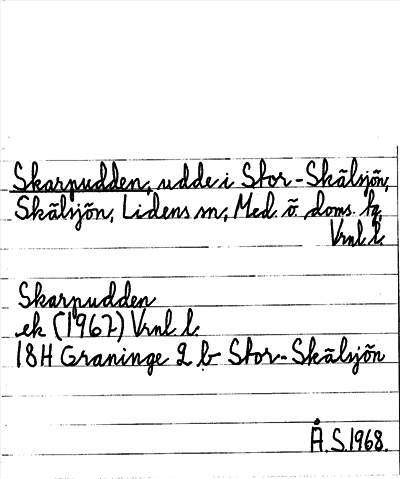 Skarpudden, udde i Stor-Skälsjön,
Skälsjön, Lidens sn, Med. ö. doms. tg,
Vrnl. l.
Skarpudden
ek (1967) Vrnl. l.
18H Graninge 2 b Stor-Skälsjön
Å. S. 1968.